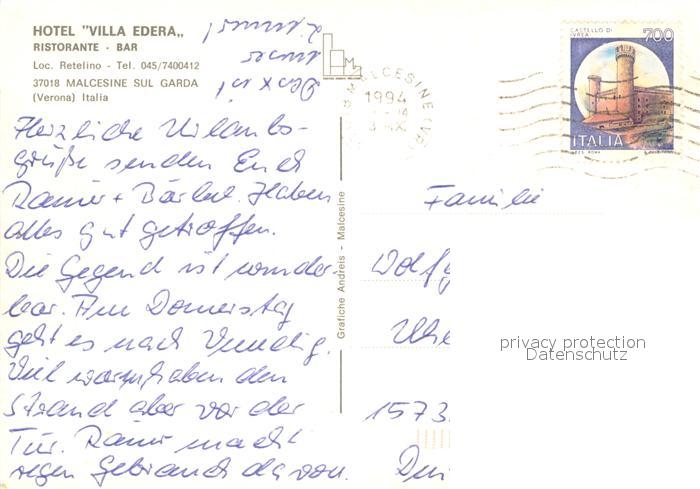 HOTEL "VILLA EDERA„
RISTORANTE - BAR
Loc. Retelino - Tel. 045/7400412
37018 MALCESINE SUL GARDA
(Verona) Italia
MALCESINE (VR)
1994
CASTELLO DI
IVREA
700
ITALIA
Herzliche Urlaubs-
grüße senden Euch
Rainer + Bärbel. Haben
alles gut getroffen.
Die Gegend ist wunder-
bar. Am Donnerstag
geht es nach Venedig.
Wir haben den
Strand aber vor der
Tür. Rainer macht
regen Gebrauch davon.
Grafiche Andreis - Malcesine
Familie
Wolfg
1573
privacy protection
Datenschutz